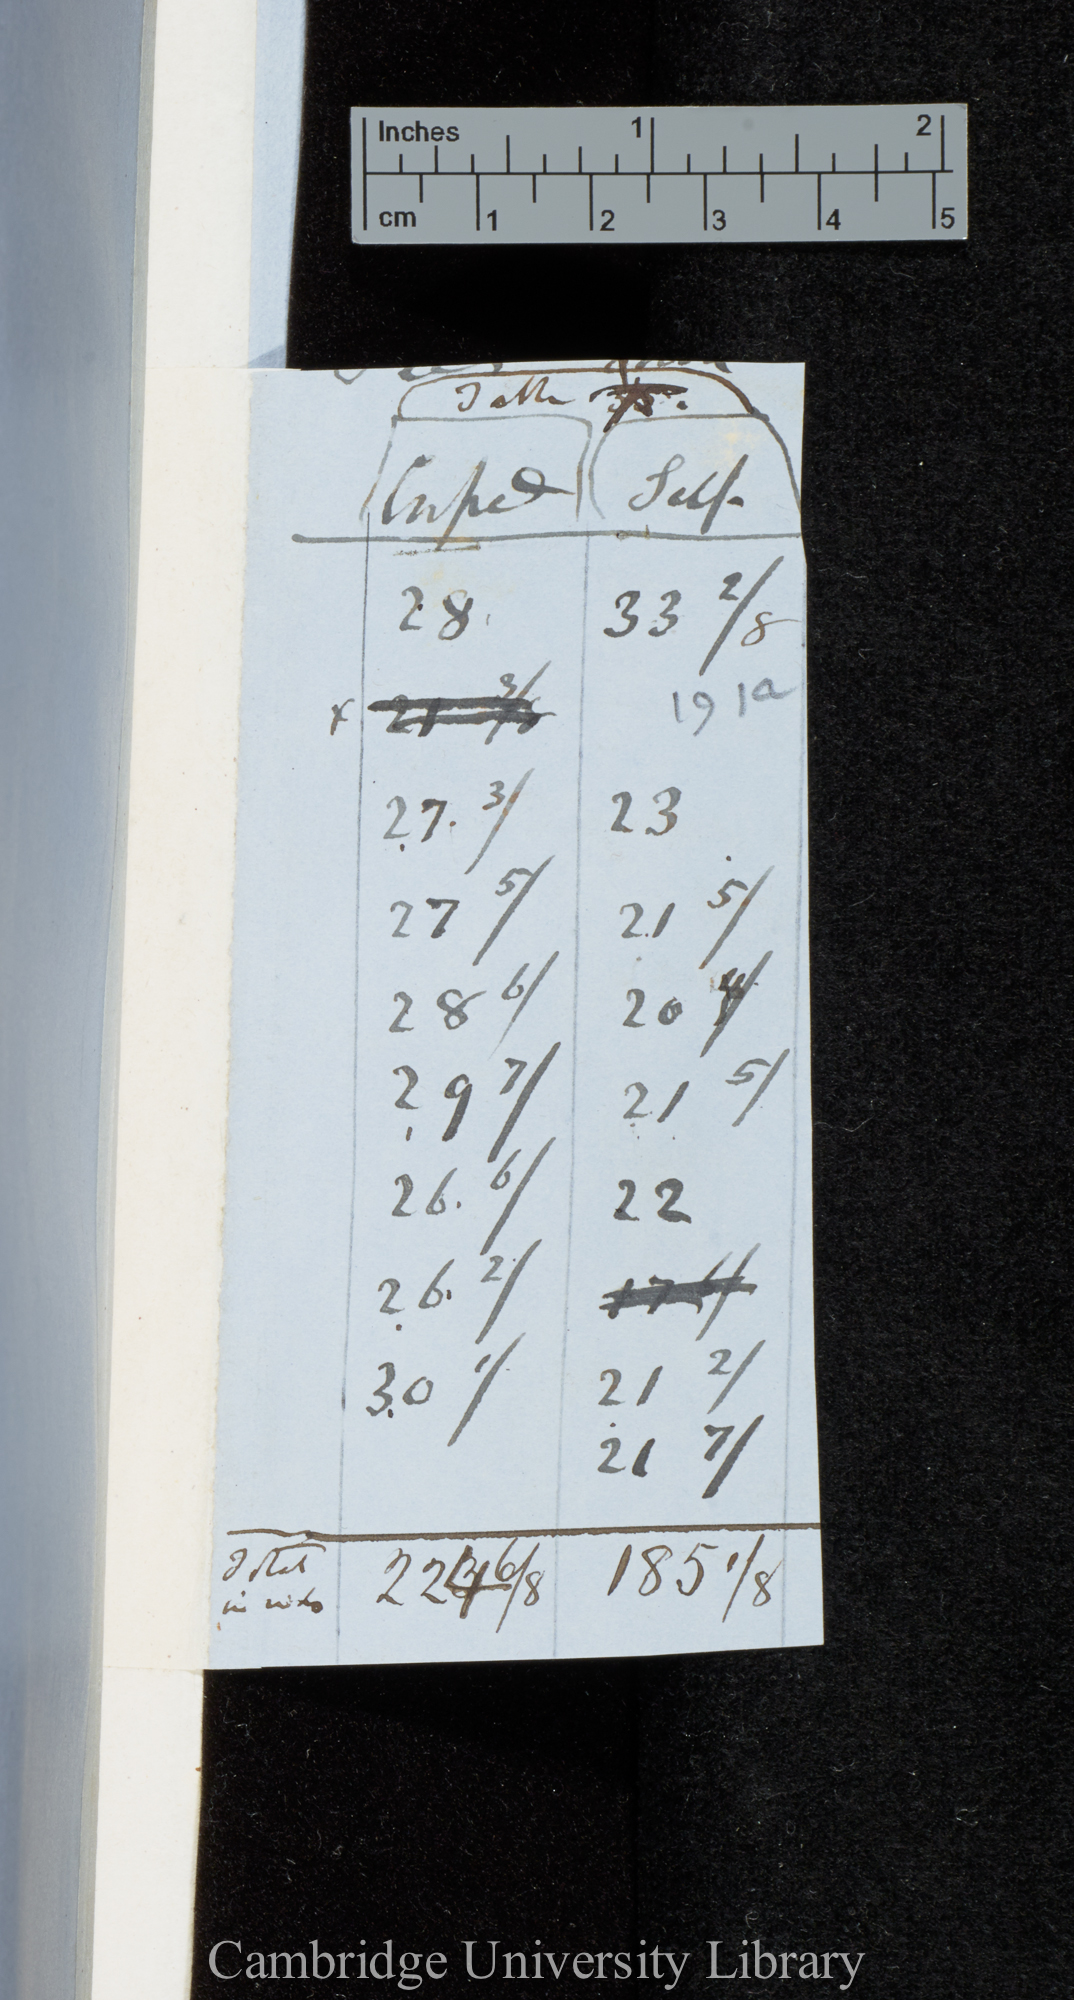 Inches 1 2
cm 1 2 3 4 5
Table
Crossed Self.
28. 33 2/8
191a
x 21 3/8
27. 3/ 23
27 5/ 21 5/
28 6/ 20 4/
29 7/ 21 5/
26. 6/ 22
26. 2/ 17 6/
30 1/ 21 2/
21 7/
Total 224 6/8 185 1/8
in inches
Cambridge University Library